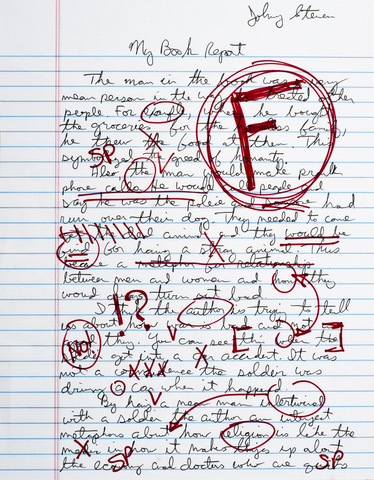 Johny Steven
My Book Report
The man in the book was a very
mean person in the way he treated other
people For he bought
the groceries for the homless family,
he threw the food at them. This
symbolized greed of
Also, the man would make prank
phone calls. He would people and
say he was the police and someone had
run over their dog. They needed to come
get the dead animal and they would be
for having a stray animal. This
became a metaphor for relationship
between men and women and how they
would turn out bad
the author is trying to tell
us about how and not
thing. You can see this when the
got into a car accident. It was
not a the soldier was
driving a car when it happened.
By having a mean man intertwined
with a soldier the author can interject
metaphors about how religion is like the
in how it makes up about
the economy and doctors who are
F
SP
!?
No!
SP
SP